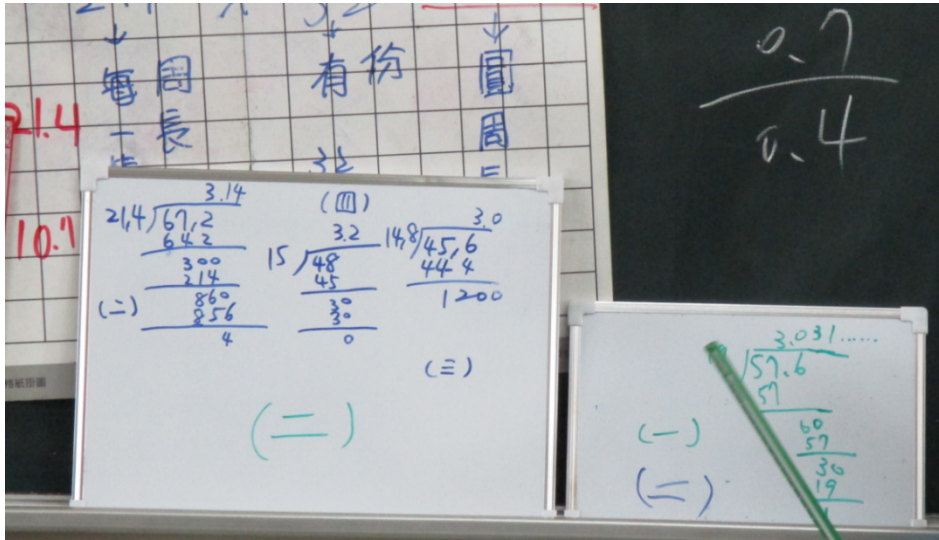 0.7
0.4
周長
每一
份
有
圓周
21.4
10.7
格紙掛圖
3.14
21,4 67,2
642
300
214
(二) 860
856
4
(四)
3.2
15 48
45
30
30
0
3.0
14,8 45,6
444
1200
(三)
(二)
3.031......
57.6
57
60
57
30
19
(一)
(二)